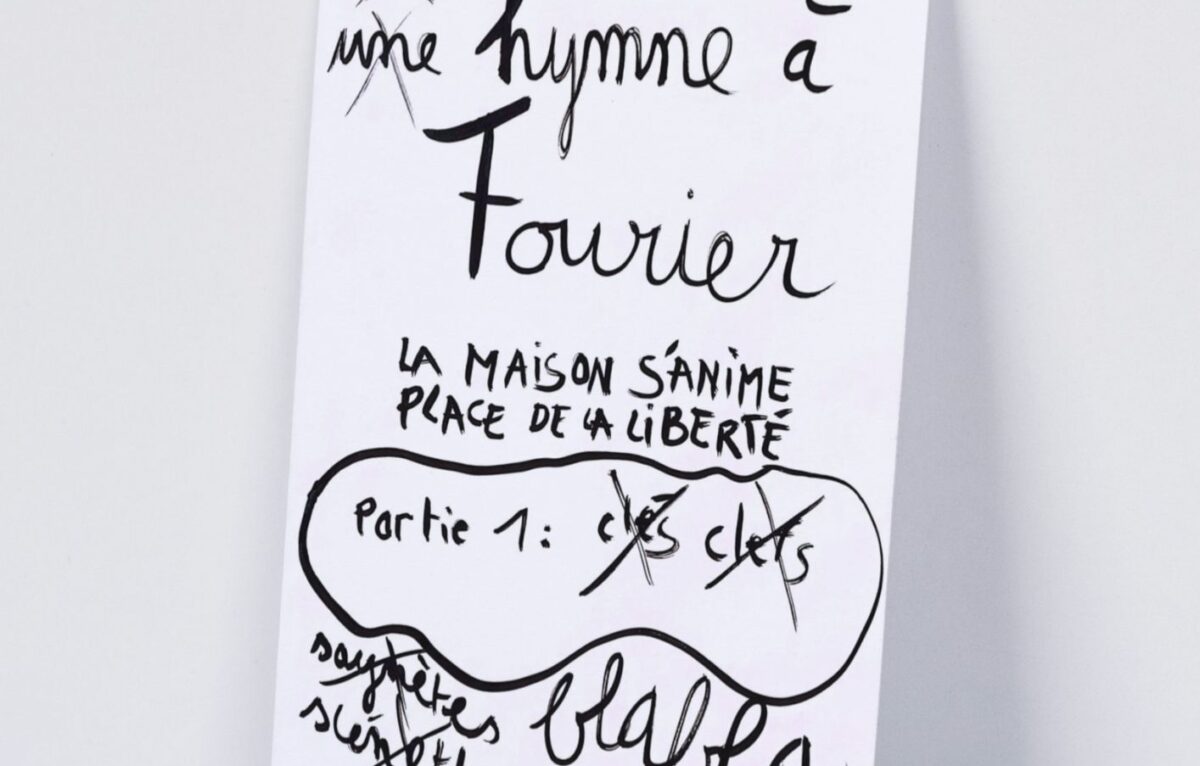 une hymne à
Fourier
LA MAISON S'ANIME
PLACE DE LA LIBERTÉ
Partie 1: clés clefs
saynètes
blabla